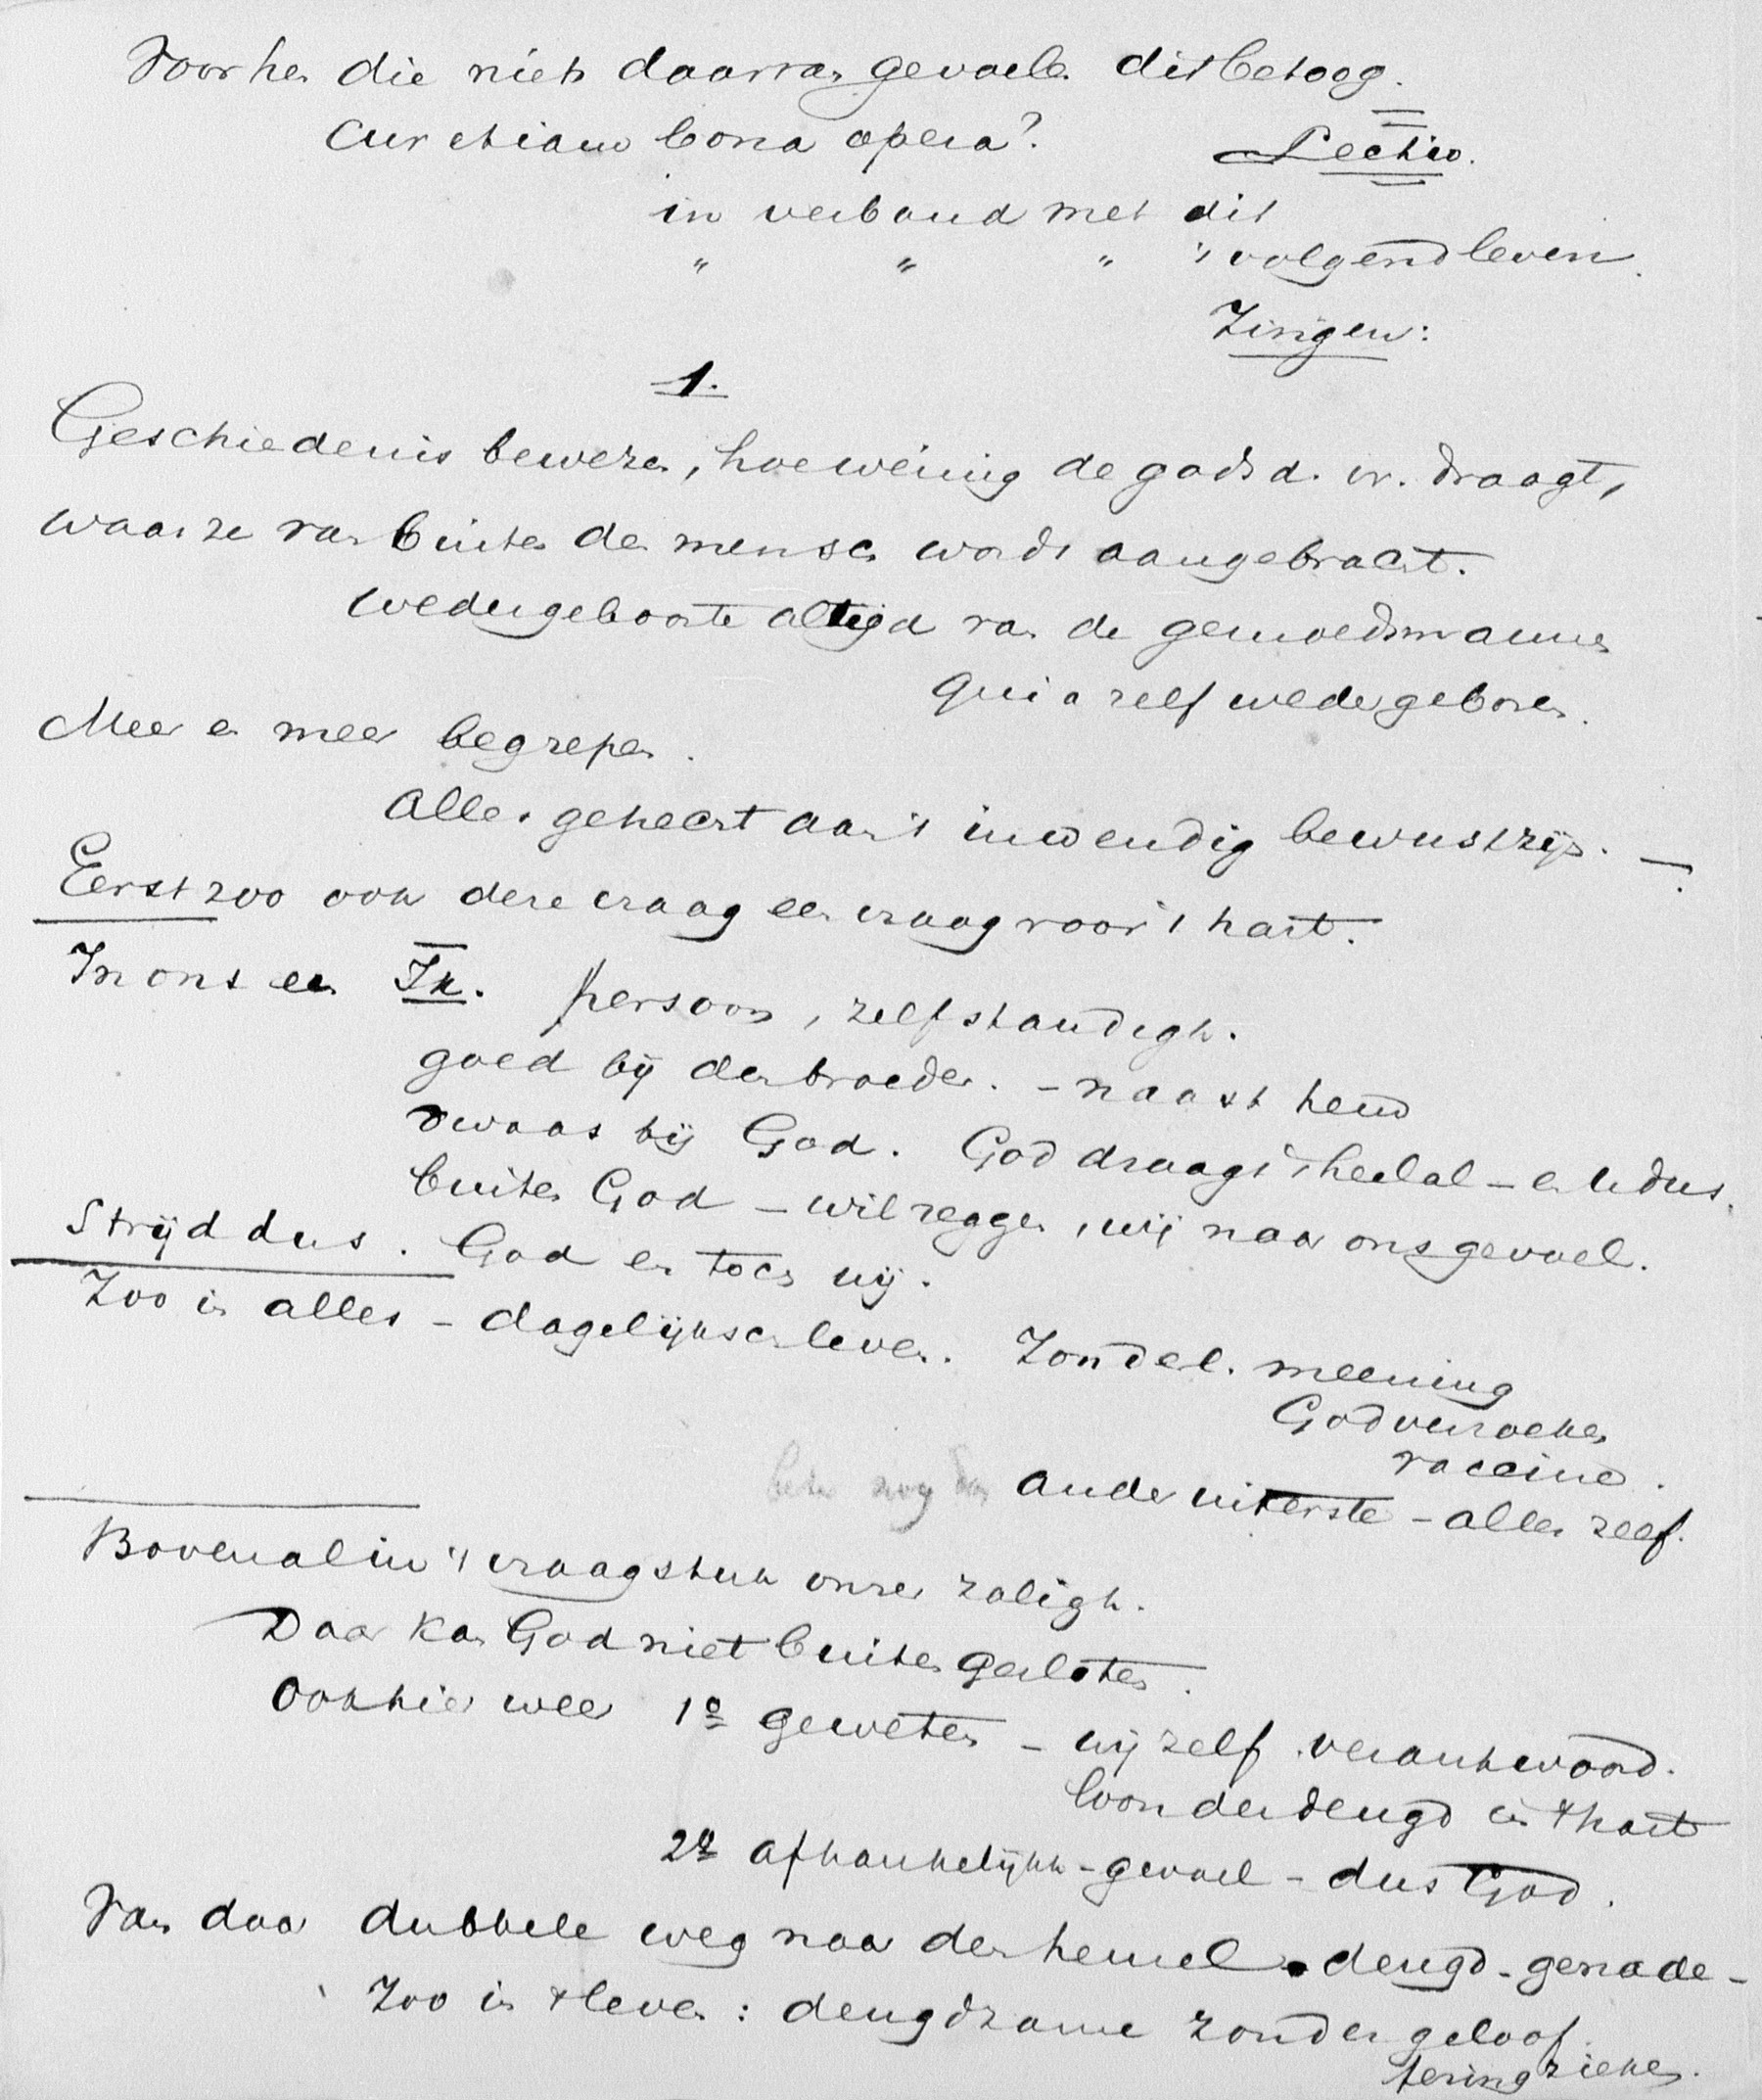 Voor hen die niets daarvan gevoelen dit betoog.
Cur etiam bona opera?
Lectio.
in verband met dit
" " " 't volgend leven.
Zingen:
1.
Geschiedenis bewezen, hoe weinig de godsd. vr. draagt,
waar ze van buiten den mensch wordt aangebracht.
Wedergeboorte altijd van de gemoedsmannen
quia zelf wedergeboren.
Meer en meer begrepen.
Alles gehecht aan 't inwendig bewustzijn. —
Eerst zoo ook deze vraag een vraag voor 't hart.
In ons een Ik. persoon, zelfstandigh.
goed bij den broeder. - naast hem
dwaas bij God. God draagt 't heelal - en U dus.
buiten God - wil zeggen, wij naar ons gevoel.
Strijd dus. God en toch wij.
Zoo in alles - dagelijksch leven. Zondel. meening
God verzoeken
vaccine.
ander uiterste - alles zelf.
Bovenal in 't vraagstuk onzer zaligh.
Daar kan God niet buiten gesloten.
Ook hier weer 1o geweten - wij zelf verantwoord.
Wonder deugd in 't hart
2o afhankelijkh - gevoel - dus God.
Van daar dubbele weg naar den hemel deugd - genade -
Zoo in 't leven: deugdzame zonder geloof.
teringzieken.